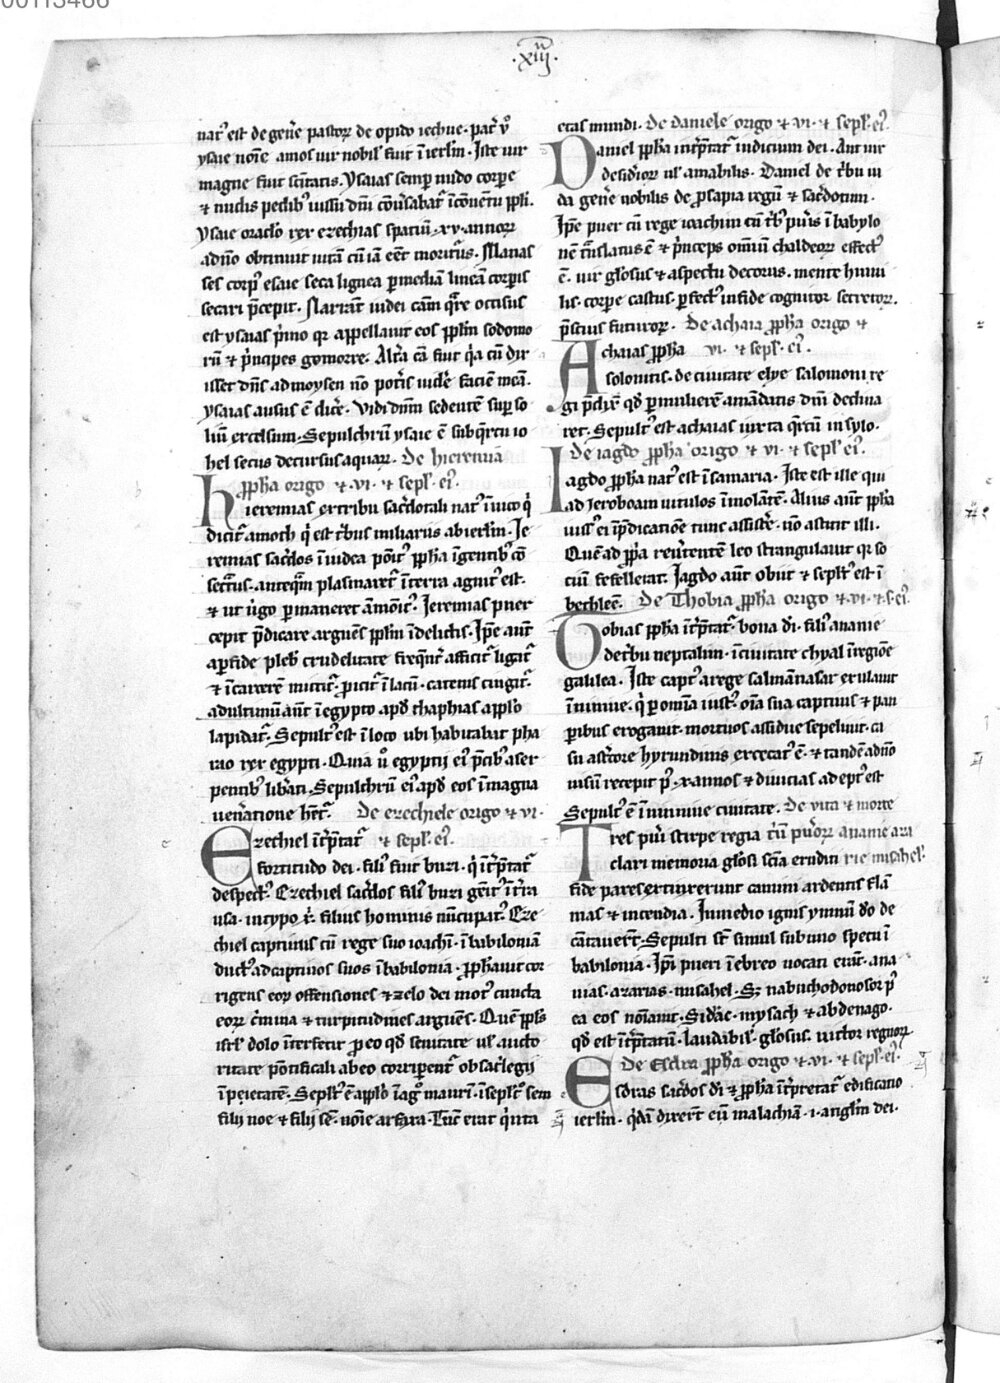 00113466
·xiii·
nat᷒ est de gen̄e pastoꝝ de opido iechue. pat᷑ v̊
ysaie noīe amos uir nobil᷒ fuit ī ierl̄m. Iste uir
magne fuit sc̄itatis. Ysaias semp nudo corpe
⁊ nudis pedib᷒ iussu dn̄i cōu᷑sabat᷑ ī cōuentu ppl̄i.
Ysaie oraclo rex ezechias spatiū .xv. annoꝝ
ad nō obtinuit uitā cū iā eēt moritur᷒. Manas
ses corp᷒ esaie seca lignea p mediam lineā corpis
secari p̄cepit. Narrāt iudei cām q̄re occisus
est ysaias p̄mo qr appellauit eos ppl̄m sodomo
rū ⁊ p̄ncipes gomorre. Alt᷑a cā fuit q̄a cū dix
isset dn̄s ad moysen nō pot᷑is uid᷑e faciē meā.
ysaias ausus ē dic᷑e. Vidi dn̄m sedentē sup so
liū excelsum. Sepulchrū ysaie ē sub q̄rcu io
hel secus decursus aquaꝝ. De hieremia
ppħa origo ⁊ .vi. ⁊ sepl᷒. ei᷒.
hieremias ex tribu sac᷑dotali nat᷒ ī uico q̄
dicit᷑ amoth q̄ est t᷑bus miliariis ab ierl̄m. Ie
remias sac᷑dos ī iudea poīt᷒ ppħa ī gentib᷒ cō
sec᷑tus. anteq̄m plasmaret᷑ ī terra agnit᷒ est.
⁊ ut u᷑go pmaneret āmōit᷒. Ieremias puer
cepit p̄dicare arguēs ppl̄m ī delictis. Ip̄e aūt
a pfide pleb᷒ crudelitate freq̄nt᷑ afficit᷑ ligat᷑
⁊ ī carcerē mittit᷑. p̄icit᷑ ī lacū. catenis cingit᷑.
ad ultimū aūt ī egypto apd thaphnas a pp̄lo
lapidat᷑. Sepult᷒ est ī loco ubi habitabat pha
rao rex egypti. Quia ū egyptij ei᷒ p̄cib᷒ a ser
pentib᷒ lib᷑ati. Sepulchrū ei᷒ apd eos ī magna
uen᷑atione het᷑. De ezechiele origo ⁊ vi.
Ezechiel īt᷑p̄tat᷑ ⁊ sepl᷒. ei᷒.
fortitudo dei. fili᷒ fuit buzi. q̄ īt᷑p̄tat᷑
despect᷒. Ezechiel sac᷑dos fili᷒ buzi genit᷒ ī t᷑ra
chiel captiuus cū rege suo ioachī. ī babiloniā
duct᷒ ad captiuos suos ī babilonia. pphauit cor
rigens eoꝝ offensiones ⁊ zelo dei mot᷒ cuncta
eoꝝ c᷑mina ⁊ turpitudines arguēs. Quē ppl̄s
isrl̄ dolo int᷑fecit p eo qd̄ seuitate ul᷒ aucto
ritate pōtificali ab eo corripent᷑ ob sac᷑legii
ī pietatē. Sepult᷒ ē a pplo ī ag᷑o mauri. ī seplc᷑o sem
filii noe ⁊ filij sē. noīe arfaxa. Tūc erat q̄nta
etas mundi. De daniele origo ⁊ vi. ⁊ sepl᷒. ei᷒.
Daniel ppħa int᷑p̄tat᷑ iudicium dei. Aut uir
desid᷑ioꝝ ul᷒ amabilis. Daniel de t᷑bu iu
da gen᷑e nobilis de psapia regū ⁊ sac᷑dotum.
Ip̄e puer cū rege ioachim cū t᷑b᷒ pu᷑is ī babylo
nē t᷑nslatus ē ⁊ p̄nceps om̄iū chaldeoꝝ effect᷒
ē. uir gl̄osus ⁊ aspectu decorus. mente humi
lis. corpe castus. pfect᷒ in fide cognitor secretoꝝ.
p̄scius futuroꝝ. De achaia ppħa origo ⁊
Achaias ppħa vi. ⁊ sepl᷒. ei᷒.
solonitis. de ciuitate elye salomoni re
gi p̄dix̄ qd̄ p mulierē a mādatis dn̄i declina
ret. Sepult᷒ est achaias iuxta q̄rcū in sylo.
De iagdo ppħa origo ⁊ vi ⁊ sepl᷒ ei᷒.
Iagdo ppħa nat᷒ est ī samaria. Iste est ille qui
ad Ieroboam uitulos ī molātē. Alius aūt ppħa
iuss᷒ ei ī p̄dicatiōe tunc assist᷑e. nō astitit illi.
Quē ad pp̄a reu᷑tentē leo strangulauit qr so
cium fefellerat. Iagdo aūt obiit ⁊ seplt᷒ est ī
bethleē. De Thobia ppħa origo ⁊ vi. ⁊ s. ei᷒.
Tobias ppħa īt᷑p̄tat᷑. bona di. fili᷒ ananie
de t᷑bu neptalim. ī ciuitate chyal ī regiōe
galilea. Iste capt᷒ a rege salmānasar exulauit
ī niniue. q̄ p omīa iust᷒. oīa sua captiuis ⁊ pau
pibus erogauit. mortuos assidue sepeliuit. ca
su a st᷑core hyrundinis excecat᷒ ē. ⁊ tandē a dn̄o
uisū recepit p᷒ .x. annos ⁊ diuicias adept᷒ est
Sepult᷒ ē ī niniue ciuitate. De vita ⁊ morte
Tres pu᷑i stirpe regia triū pu᷑oꝝ ananie aza
clari memoria gl̄osi sc̄ia eruditi rie misahel᷒.
fide pares extinxerunt camini ardentis flā
mas ⁊ incendia. In medio ignis ymnū do de
cātauer̄t. Sepulti st̄ simul sub uno specu ī
babilonia. Ip̄i pueri ī ebreo uocati erāt. ana
nias. azarias. misahel. Sꝫ nabuchodonosor p᷒
ea eos noīauit. Sidrāc. mysach ⁊ abdenago.
qd̄ est īt᷑p̄tatū. laudabil᷒. gl̄osus. uictor regnoꝝ
De Esdra ppħa origo ⁊ vi. ⁊ sepl᷒. ei᷒.
Esdras sac᷑dos di ⁊ ppħa īt᷑pretat᷑ edificatio
ierl̄m. q̄dā dixer̄t eū malachiā .i. angl̄m dei.